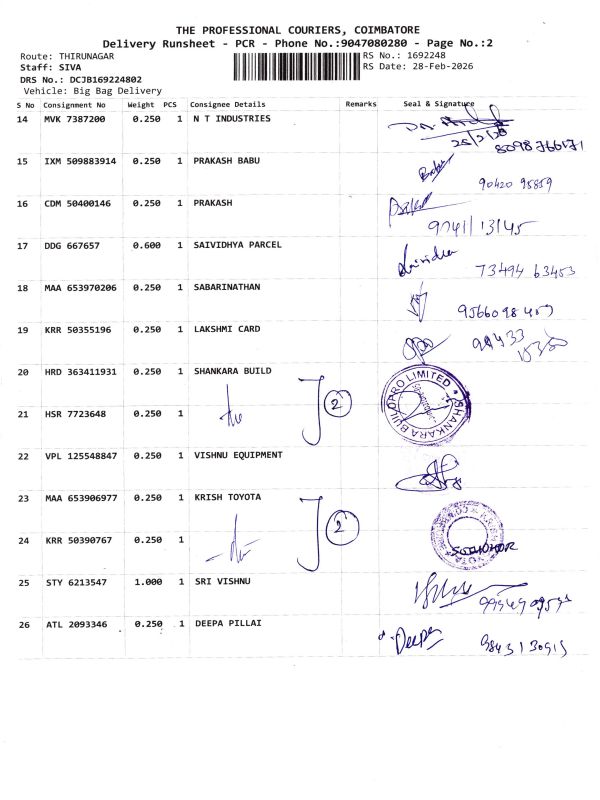 THE PROFESSIONAL COURIERS, COIMBATORE
Delivery Runsheet - PCR - Phone No.:9047080280 - Page No.:2
Route: THIRUNAGAR
RS No.: 1692248
Staff: SIVA
RS Date: 28-Feb-2026
DRS No.: DCJB169224802
Vehicle: Big Bag Delivery
S No Consignment No Weight PCS Consignee Details Remarks Seal & Signature
14 MVK 7387200 0.250 1 N T INDUSTRIES
8098766171
15 IXM 509883914 0.250 1 PRAKASH BABU
90420 95859
16 CDM 50400146 0.250 1 PRAKASH
9041/13145
17 DDG 667657 0.600 1 SAIVIDHYA PARCEL
73494 63453
18 MAA 653970206 0.250 1 SABARINATHAN
19 KRR 50355196 0.250 1 LAKSHMI CARD
20 HRD 363411931 0.250 1 SHANKARA BUILD
2
SHANKARA BUILDPRO LIMITED
21 HSR 7723648 0.250 1
22 VPL 125548847 0.250 1 VISHNU EQUIPMENT
23 MAA 653906977 0.250 1 KRISH TOYOTA
2
24 KRR 50390767 0.250 1
25 STY 6213547 1.000 1 SRI VISHNU
26 ATL 2093346 0.250 1 DEEPA PILLAI
Deepa
98431 30915